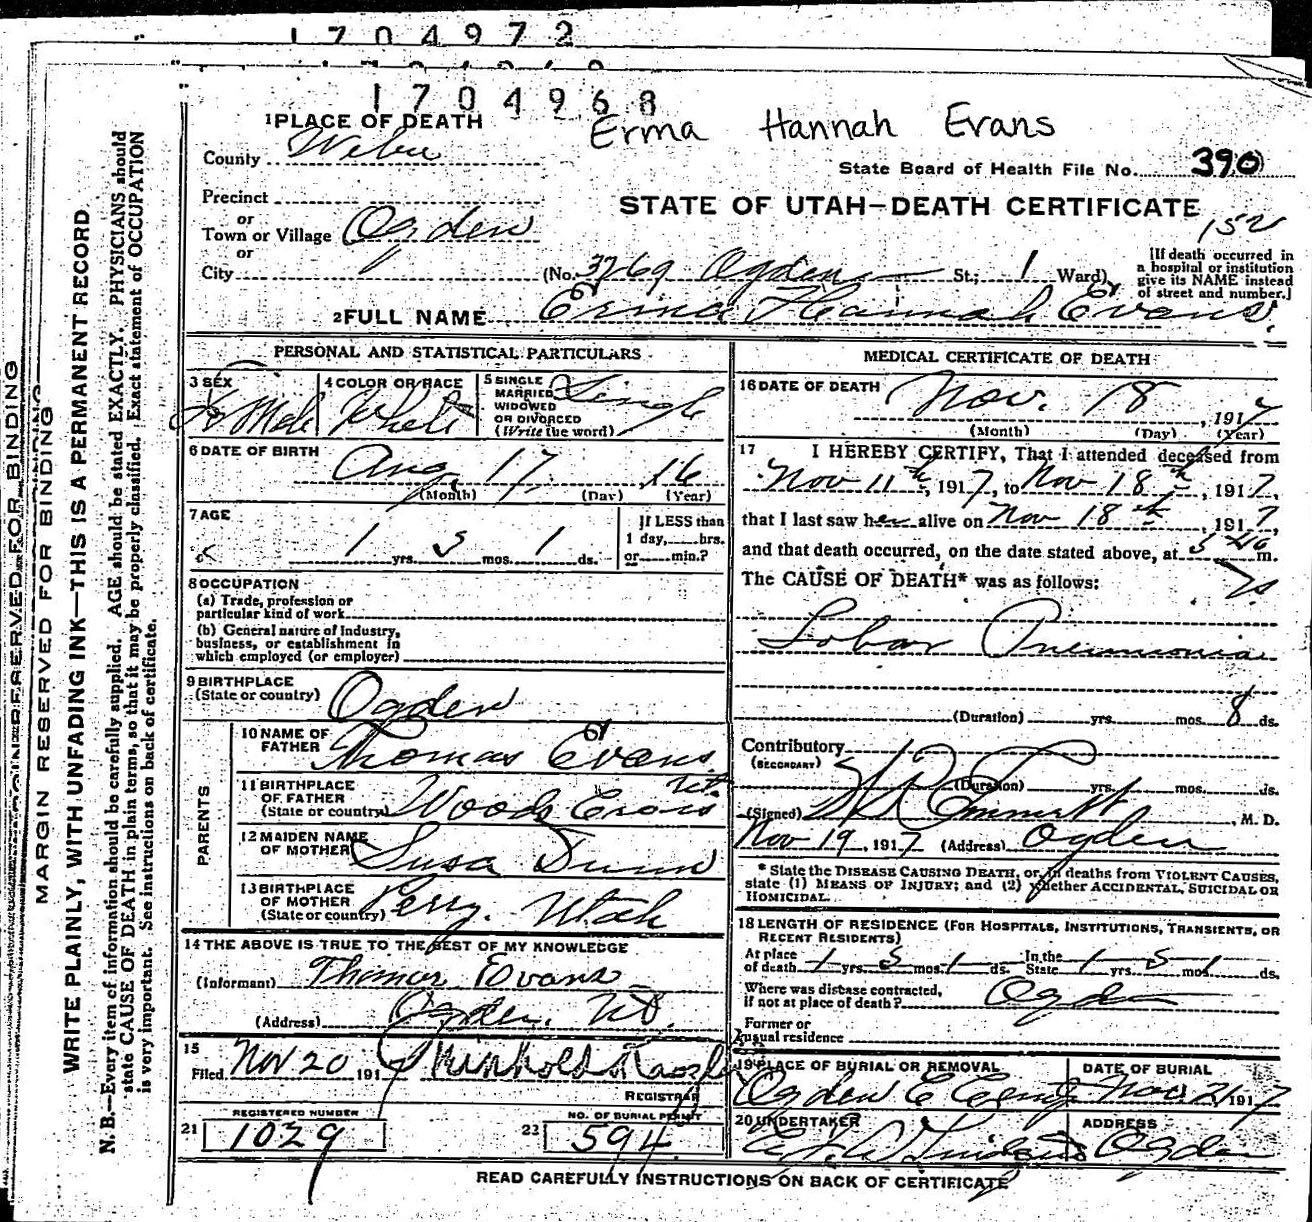 1704972
1704968
Erma Hannah Evans
1 PLACE OF DEATH
County Weber
State Board of Health File No. 390
Precinct
or
Town or Village Ogden
or
City
STATE OF UTAH—DEATH CERTIFICATE
152
(No. 3769 Ogden St.; 1 Ward)
[If death occurred in a hospital or institution give its NAME instead of street and number.]
2 FULL NAME Erma Hannah Evans
PERSONAL AND STATISTICAL PARTICULARS
3 SEX Female
4 COLOR OR RACE White
5 SINGLE MARRIED WIDOWED OR DIVORCED (Write the word) Single
6 DATE OF BIRTH Aug 17, 16
(Month) (Day) (Year)
7 AGE
1 yrs. 3 mos. 1 ds.
If LESS than 1 day, hrs. or min.?
8 OCCUPATION
(a) Trade, profession or particular kind of work
(b) General nature of industry, business, or establishment in which employed (or employer)
9 BIRTHPLACE
(State or country) Ogden
PARENTS
10 NAME OF FATHER Thomas Evans
11 BIRTHPLACE OF FATHER (State or country) Woods Cross Ut
12 MAIDEN NAME OF MOTHER Susa Dunn
13 BIRTHPLACE OF MOTHER (State or country) Perry, Utah
14 THE ABOVE IS TRUE TO THE BEST OF MY KNOWLEDGE
(Informant) Thomas Evans
(Address) Ogden, Ut.
15
Filed Nov 20 1917
REGISTRAR
REGISTERED NUMBER
21 1029
NO. OF BURIAL PERMIT
22 594
MEDICAL CERTIFICATE OF DEATH
16 DATE OF DEATH Nov. 18, 1917
(Month) (Day) (Year)
17 I HEREBY CERTIFY, That I attended deceased from
Nov 11th, 1917, to Nov 18th, 1917,
that I last saw her alive on Nov 18th, 1917,
and that death occurred, on the date stated above, at 5 40 m.
The CAUSE OF DEATH* was as follows:
Lobar Pneumonia
(Duration) yrs. mos. 8 ds.
Contributory
(SECONDARY)
(Duration) yrs. mos. ds.
(Signed) Emmett, M. D.
Nov 19, 1917 (Address) Ogden
* State the DISEASE CAUSING DEATH, or, in deaths from VIOLENT CAUSES, state (1) MEANS OF INJURY; and (2) whether ACCIDENTAL, SUICIDAL OR HOMICIDAL.
18 LENGTH OF RESIDENCE (FOR HOSPITALS, INSTITUTIONS, TRANSIENTS, OR RECENT RESIDENTS)
At place of death 1 yrs. 3 mos. 1 ds. In the State 1 yrs. 3 mos. 1 ds.
Where was disease contracted, if not at place of death? Ogden
Former or usual residence
19 PLACE OF BURIAL OR REMOVAL
Ogden C Cemy
DATE OF BURIAL
Nov 21 1917
20 UNDERTAKER
ADDRESS
Ogden
READ CAREFULLY INSTRUCTIONS ON BACK OF CERTIFICATE
MARGIN RESERVED FOR BINDING
MARGIN RESERVED FOR BINDING
WRITE PLAINLY, WITH UNFADING INK—THIS IS A PERMANENT RECORD
N. B.—Every item of information should be carefully supplied. AGE should be stated EXACTLY. PHYSICIANS should
state CAUSE OF DEATH in plain terms, so that it may be properly classified. Exact statement of OCCUPATION
is very important. See instructions on back of certificate.